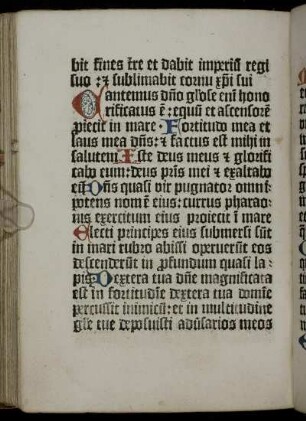 bit fines t̄re et dabit imperiū regi
suo : ⁊ sublimabit cornu xp̄i sui
Cantemus dn̄o gl̄ose enī hono
rificatus ē : equū et ascensorē
p̄iecit in mare . Fortitudo mea et
laus mea dn̄s : ⁊ factus est mihi in
salutem Iste deus meus ⁊ glorifi
cabo eum : deus pr̄is mei ⁊ exaltabo
eū Dn̄s quasi vir pugnator omni
potens nomē eius : currus pharao
nis exercitum eius proiecit ī mare
Electi principes eius submersi sūt
in mari rubro abissi operuerūt eos
descenderūt in ꝓfundum quasi la
pis Dextera tua dn̄e magnificata
est ī fortitudīe dextera tua domīe
percussit inimicū : et in multitudīne
gl̄e tue deposuisti aduersarios meos